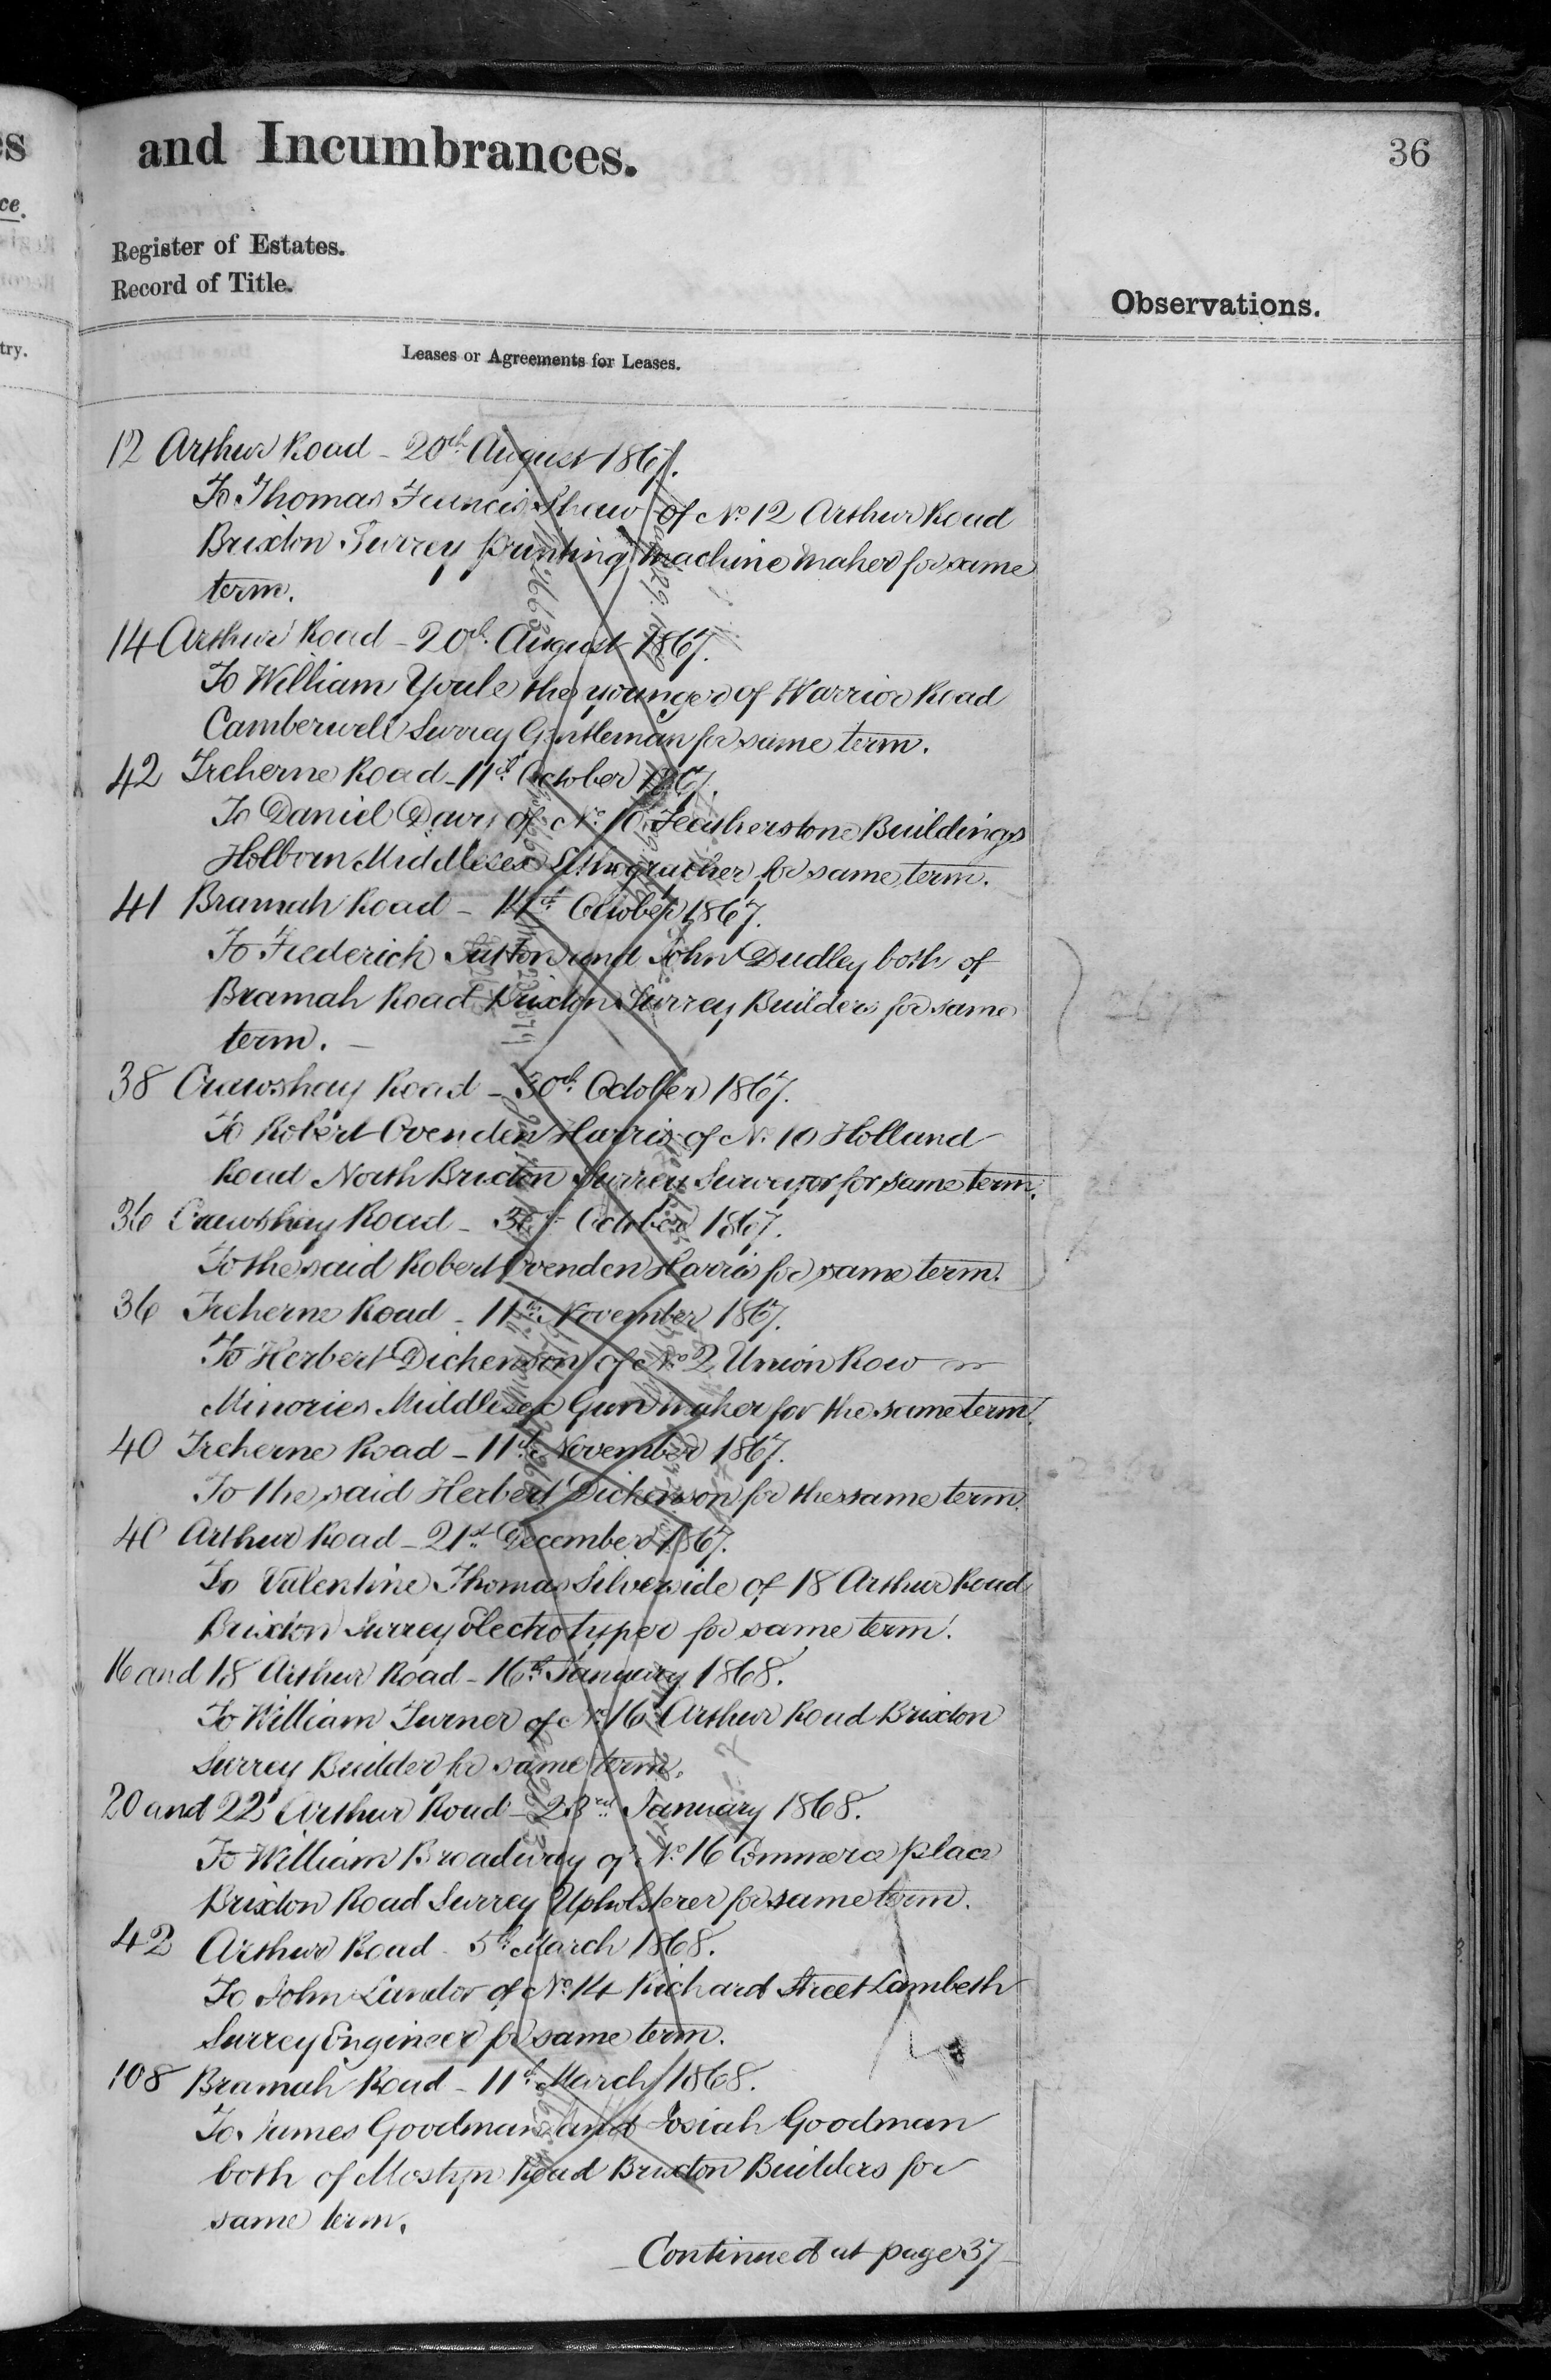 and Incumbrances.
36
Register of Estates.
Record of Title.
Observations.
Leases or Agreements for Leases.
12 Arthur Road - 20th August 1867.
To Thomas Francis Shaw of No. 12 Arthur Road
Brixton Surrey printing machine maker for same
term.
14 Arthur Road - 20th August 1867.
To William Youle the younger of Warrior Road
Camberwell Surrey Gentleman for same term.
42 Treherne Road - 11th October 1867.
To Daniel Davis of No. 10 Featherstone Buildings
Holborn Middlesex Lithographer for same term.
41 Bramah Road - 11th October 1867.
To Frederick Sutton and John Dudley both of
Bramah Road Brixton Surrey Builders for same
term. -
38 Crawshay Road - 30th October 1867.
To Robert Ovenden Harris of No. 10 Holland
Road North Brixton Surrey Surveyor for same term.
36 Crawshay Road - 30th October 1867.
To the said Robert Ovenden Harris for same term.
36 Treherne Road - 11th November 1867.
To Herbert Dickenson of No. 2 Union Row
Minories Middlesex Gun maker for the same term.
40 Treherne Road - 11th November 1867.
To the said Herbert Dickenson for the same term.
40 Arthur Road - 21st December 1867.
To Valentine Thomas Silverside of 18 Arthur Road
Brixton Surrey Electrotyper for same term.
16 and 18 Arthur Road - 16th January 1868.
To William Turner of No. 16 Arthur Road Brixton
Surrey Builder for same term.
20 and 22 Arthur Road - 23rd January 1868.
To William Broadway of No. 16 Commerce place
Brixton Road Surrey Upholsterer for same term.
42 Arthur Road - 5th March 1868.
To John of No. 14 Richard Street Lambeth
Surrey Engineer for same term.
108 Bramah Road - 11th March 1868.
To James Goodman and Josiah Goodman
both of Mostyn Road Brixton Builders for
same term.
Continued at page 37